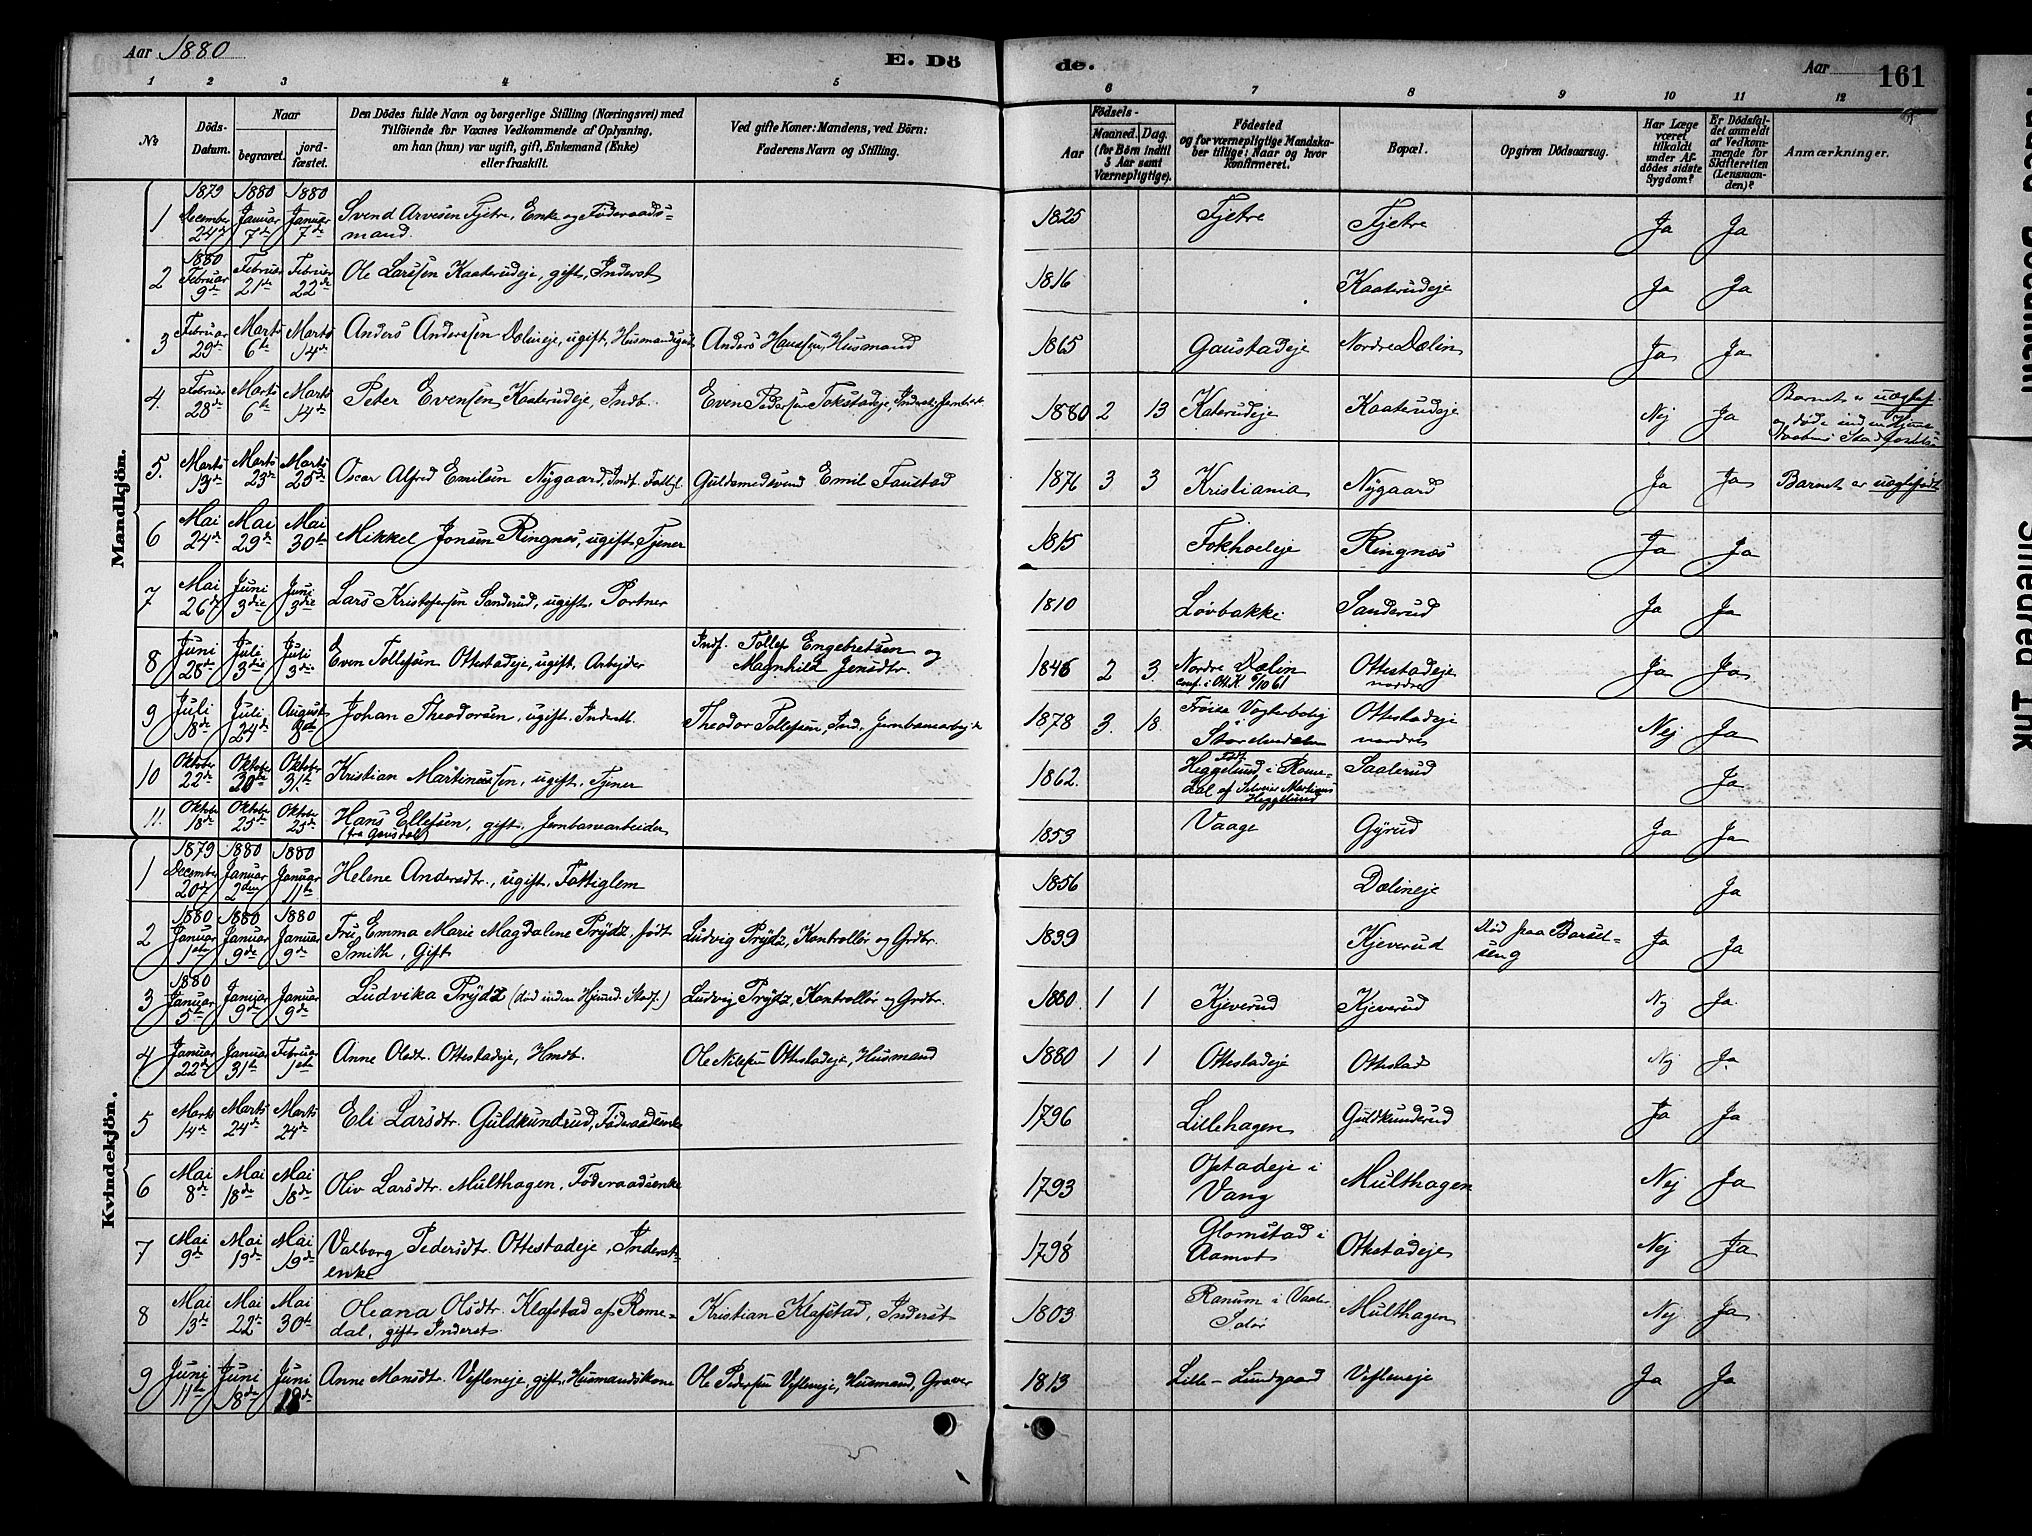 Aar 1880
E. Dö
de.
Aar
161
1 2 3 4 5 6 7 8 9 10 11 12
No
Döds-Datum.
Naar
begravet.
jordfæstet.
Den Dödes fulde Navn og borgerlige Stilling (Næringsvei) med
Tilföiende for Voxnes Vedkommende af Oplysning,
om han (hun) var ugift, gift, Enkemand (Enke)
eller fraskilt.
Ved gifte Koner: Mandens, ved Börn:
Faderens Navn og Stilling.
Födsels-
Aar
Maaned. Dag.
(for Börn indtil
5 Aar samt
Værnepligtige).
Födested
og for værnepligtige Mandska-
ber tillige: Naar og hvor
konfirmeret.
Bopæl.
Opgiven Dödsaarsag.
Har Læge
været
tilkaldt
under Af-
dödes sidste
Sygdom?
Er Dödsfal-
det anmeldt
af Vedkom-
mende for
Skifteretten
(Lensman-
den)?
Anmærkninger.
Mandkjön.
1 1879 December 24de 1880 Januar 7de 1880 Januar 7de Svend Arvesen Fjetre, Enke og Föderaads=
mand. 1825 Fjetre Fjetre Ja Ja
2 1880 Februar 9de Februar 21de Februar 22de Ole Larssen Kaaterudeje, gift, Inderst 1816 Kaaterudeje Ja Ja
3 Februar 29de Marts 6te Marts 14de Anders Anderssen Dolineje, ugift, Anders Hanssen, Husmand 1865 Gaustadeje Nordre Dælin Ja Ja
4. Februar 28de Marts 6te Marts 14de Peter Evensen Kaaterudeje, Indt. Even Pedersen Tokstadeje, 1880 2 13 Katerudeje Kaaterudeje Nej Ja Barnet er uægtef.
5. Marts 13de Marts 23de Marts 25de Oscar Alfred Emilsen Nygaard, Guldsmedsvend Emil Faustad 1876 3 3 Kristiania Nygaard Ja Ja Barnet er uægtefödt
6 Mai 24de Mai 29de Mai 30te Mikkel Jonsen Ringnes, ugift, Tjener 1815 Fokholeje Ringnes Ja Ja
7 Mai 26de Juni 3die Juni 3die Lars Kristofersen Sanderud, ugift, Portner 1810 Lövbakke Sanderud Ja Ja
8 Juni 28de Juli 3die Juli 3die Even Tollefsen Ottestadeje, ugift, Arbejder Indf. Tollef Engebretsen og
Magnhild Jensdtr. 1846 2 3 Nordre Dælin Ottestadeje
nordre Ja Ja
9 Juli 18de Juli 24de August 8de Johan Theodorsen, ugift, Theodor Tollefsen, Ind. Jernbanearbejde 1878 3. 18. Ottestadeje
nordre Nej Ja
10 Oktober 22de Oktober 30te Oktober 31te Kristian Martinussen, ugift, Tjener 1862. Heggelund i Rome-
dal Saalerud Ja
11. Oktober 18de Oktober 25de Oktober 25de Hans Ellefsen, gift, Jernbanearbeider
(fra Gausdal) 1853 Vaage Gyrud Ja Ja
Kvindekjön.
1 1879 December 20de 1880 Januar 2den 1880 Januar 11te Helene Andersdtr., ugift, Fattiglem 1856 Dælineje Ja
2 1880 Januar 1ste 1880 Januar 9de 1880 Januar 9de Fru Emma Marie Magdalene Prydz, född
Smith, Gift Ludvig Prydz, Kontrollör og Grdbr. 1839 Kjeverud Död paa Barsel-
seng Ja Ja
3 1880 Januar 5te Januar 9de Januar 9de Ludvika Prydz Ludvig Prydz, Kontrollör og Grdbr. 1880. 1 1 Kjeverud Kjeverud Nej Ja.
4 Januar 22de Januar 31te Februar 1ste Anne Olsdt. Ottestadeje, Hmdt. Ole Nilssen Ottestadeje, Husmand 1880 1 1 Ottestadeje Ottestad Nej Ja.
5 Marts 14de Marts 24de Marts 24de Eli Larsdtr. Guldkunderud, Föderaadsenke 1796 Lillehagen Guldkunderud Ja Ja
6 Mai 8de Mai 18de Mai 18de Oliv Larsdtr. Multhagen, Föderaadsenke 1793 Opstadeje i
Vang Multhagen Nej Ja
7 Mai 9de Mai 19de Mai 19de Valborg Pedersdtr. Ottestadeje, Inderst-
enke 1798 Glomstad i
Aamot Ottestadeje Nej Ja
8 Mai 13de Mai 22de Mai 30te Oleana Olsdtr. Klafstad af Rome-
dal, gift, Inderst. Kristian Klafstad, Inderst 1803 Ranum i Vaaler
Solör Multhagen Nej Ja
9 Juni 11te Juni 18de Juni Anne Monsdtr. Vefleneje, gift, Husmandskone Ole Pedersen Vefleneje, Husmand, Graver 1813 Lille-Lundgaard Vefleneje Ja Ja